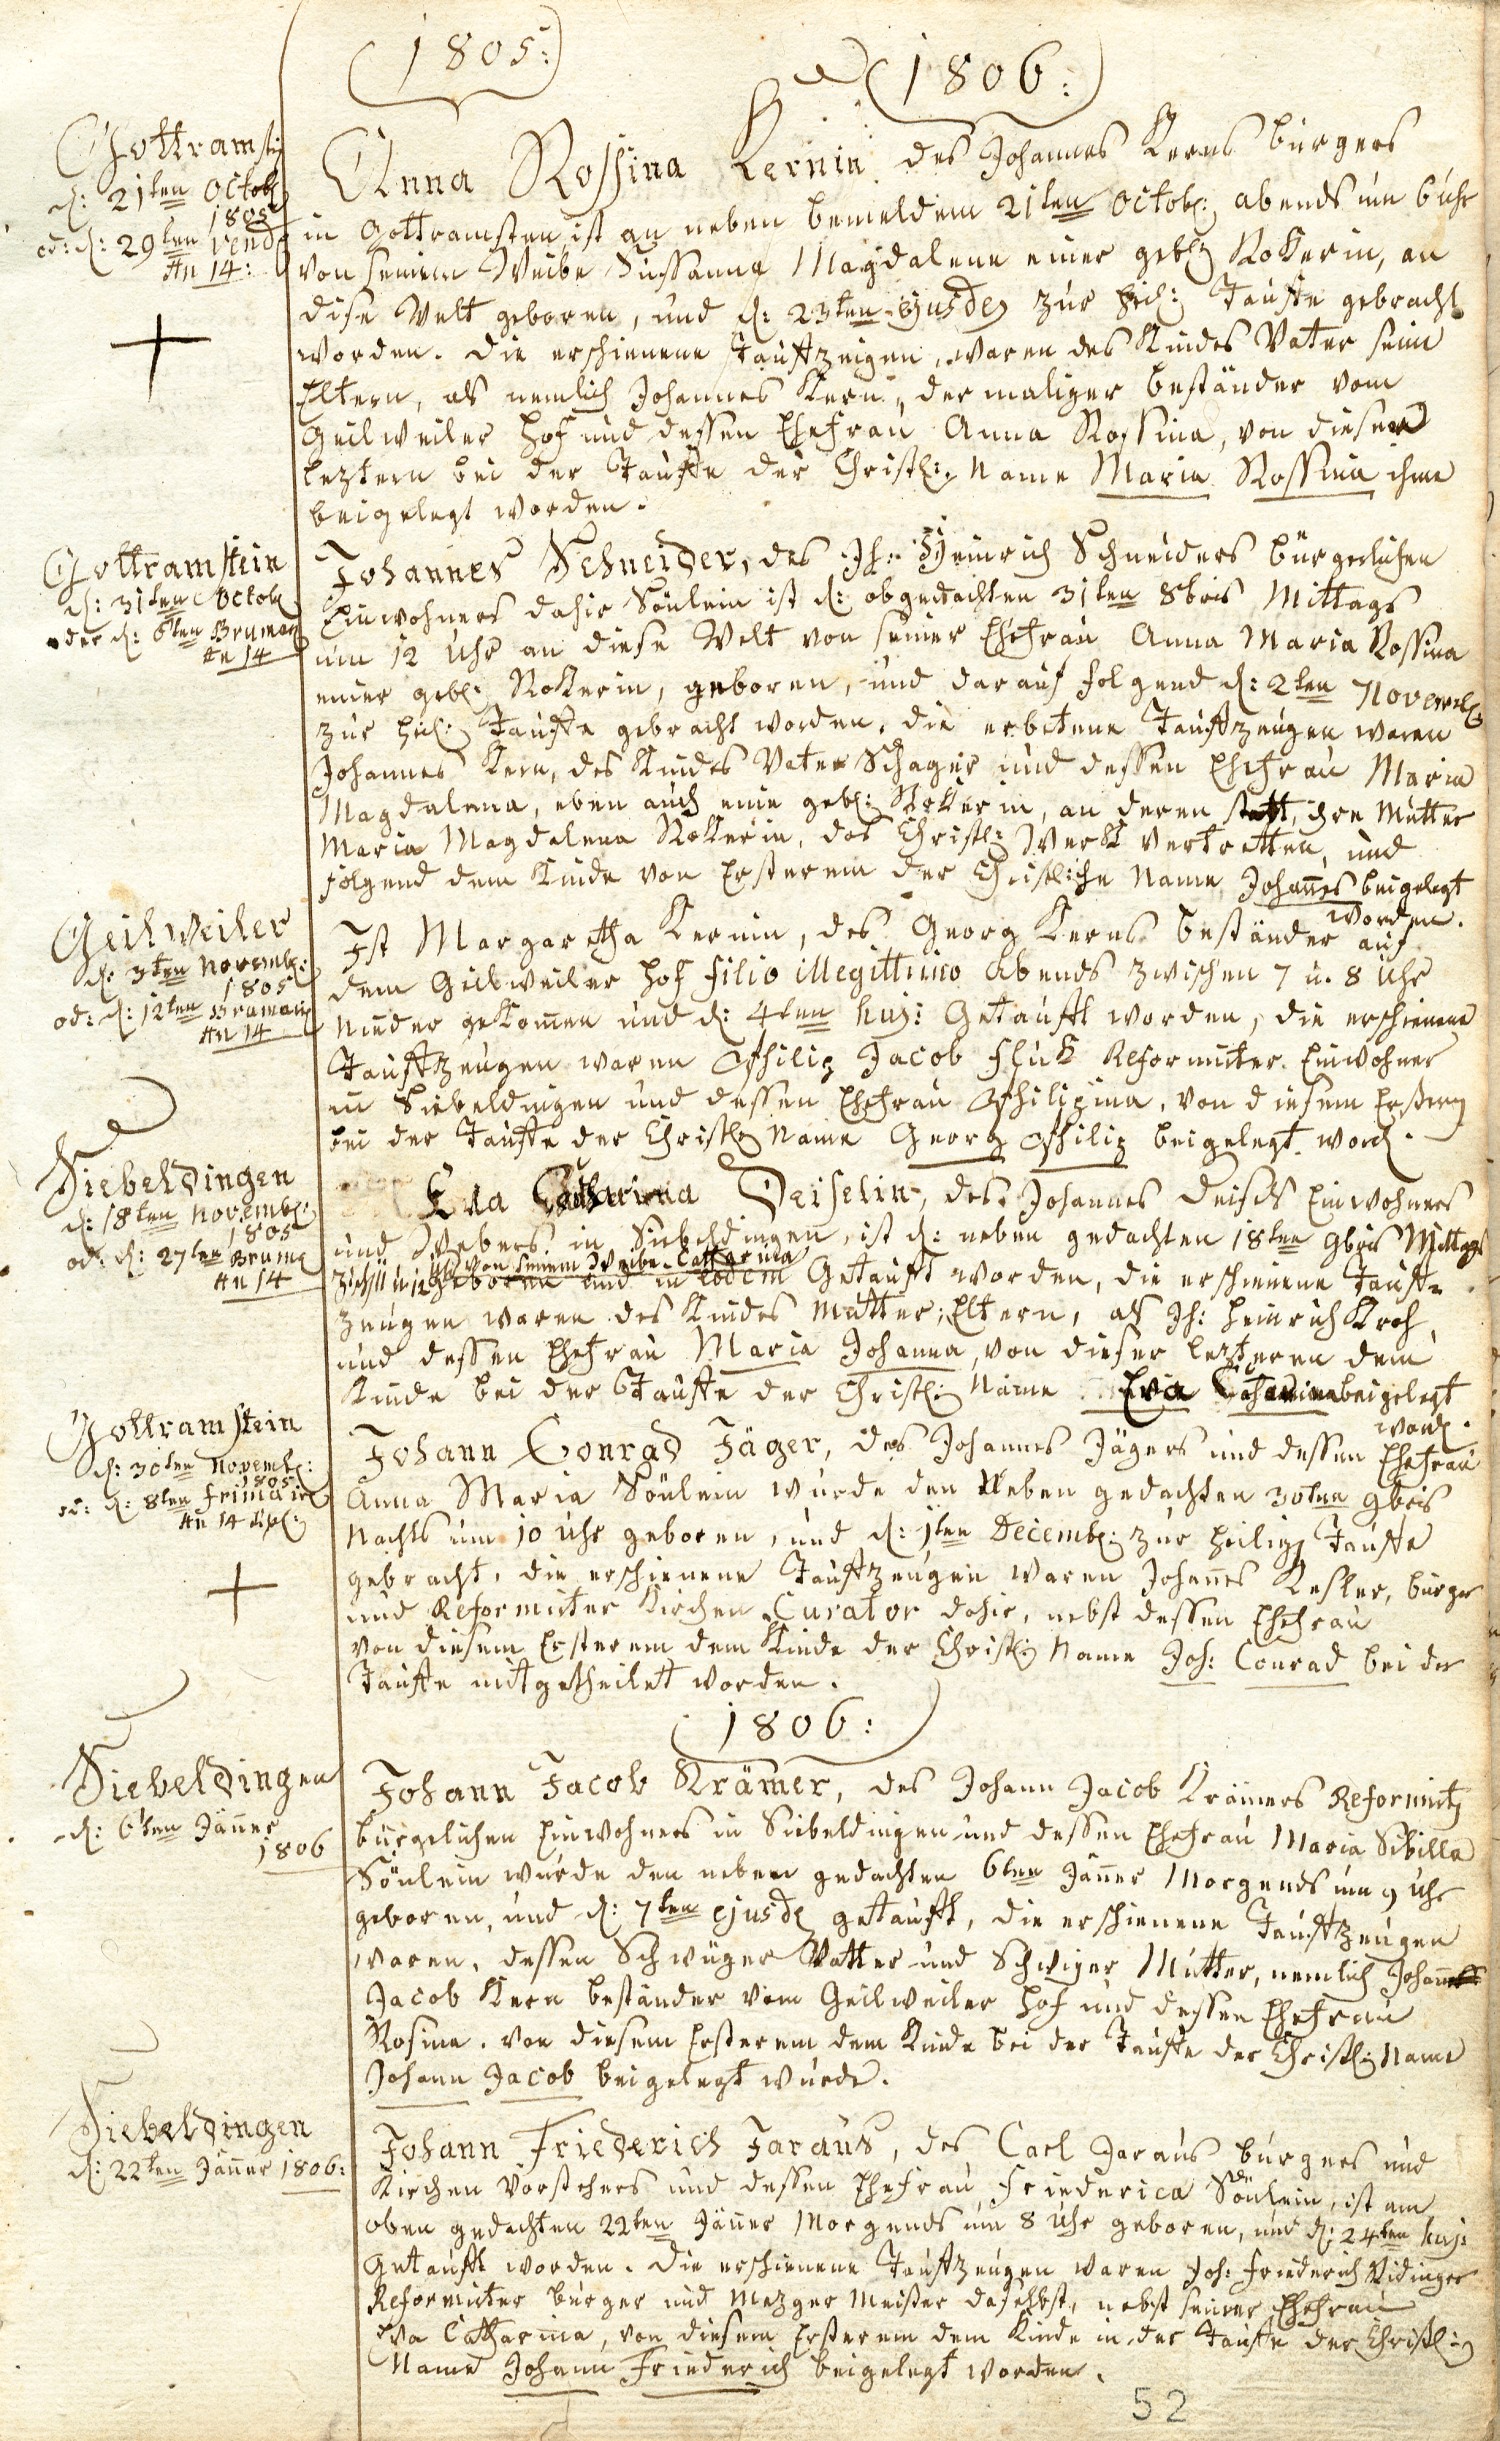 1805:
1806:
Gottramst:
d: 21ten Octob:
1805
od: d: 29ten vend:
An 14:
Anna Rossina Kernin des Johannes Kerns bürgers
in Gottramsten, ist an neben bemeldem 21ten Octob: abends um 6 uhr
von seinem Weibe Sussanna Magdalena einer geb: Rokerin, an
dise Welt geboren, und d: 23ten ejusdem zur heil: Tauffe gebracht
worden. die erschienene Tauffzeigen, waren des Kindes Vater seine
Eltern, als nemlich Johannes Kern, dermaliger beständer vom
Geilweiler hof und dessen Ehefrau Anna Rossina, von dieser
leztern bei der Tauffe der Christl: Name Maria Rossina ihme
beigelegt worden.
Gottramstein
d: 31ten Octob:
oder d: 6ten Brumair
An 14
Johannes Schneider, des Jh: Heinrich Schneiders bürgerlichen
Einwohners dahir Sönlein ist d: obgedachten 31ten 8bris Mittags
um 12 Uhr an diese Welt von seiner Ehefrau Anna Maria Rossina
einer geb: Rokerin, geboren, und darauf folgend d: 2ten Novemb:
zur heil: Tauffe gebracht worden, die erbetene Tauffzeugen waren
Johannes Kern, des Kindes Vater Schager und dessen Ehefrau Maria
Magdalena, eben auch eine geb: Rokerin, an deren statt, ihre Mutter
Maria Magdalena Rokerin, das Christl: Werk vertretten, und
folgend dem Kinde von Ersterem der Christliche Name Johañes beigelegt
worden.
Geilweiler
d: 3ten Novemb:
1805
od: d: 12ten Brumair
An 14
Ist Margaretha Kernin, des Georg Kerns beständer auf
dem Geilweiler hof filio illegittimo abends zwischen 7 u. 8 Uhr
nieder gekomen und d: 4ten huj: Getaufft worden, die erschienene
Tauffzeugen waren Philip Jacob Fluk Reformirter Einwohner
in Siebeldingen und dessen Ehefrau Philipina, von diesem Erstern
bei der Tauffe der Christl: Name Georg Philip beigelegt word:
Siebeldingen
d: 18ten Novemb:
1805
od: d: 27ten Brum:
An 14
Eva Deiselin, des Johannes Deisels Einwohners
und Webers in Siebeldingen, ist d: neben gedachten 18ten 9bris Mittags
von seinem Weibe Catharina
geboren und in eodem Getaufft worden, die erschienene Tauff
zeugen waren des Kindes Mutter, Eltern, als Jh: Heinrich Kroh,
und dessen Ehefrau Maria Johanna, von dieser lezteren dem
Kinde bei der Tauffe der Christl: Name Eva beigelegt
word:
Gottramstein
d: 30ten Novemb:
1805
od: d: 8ten frimaire
An 14
Johann Conrad Jäger, des Johannes Jägers und dessen Ehefrau
Anna Maria Sönlein wurde den neben gedachten 30ten 9bris
Nachts um 10 uhr geboren, und d: 1ten Decemb: zur heilig: Tauffe
gebracht, die erschienene Tauffzeugen waren Johañes Kesler, bürger
und Reformirter Kirchen Curator dahir, nebst dessen Ehefrau
von diesem Ersterem dem Kinde der Christl: Name Joh: Conrad bei der
Tauffe mitgetheilet worden.
1806:
Siebeldingen
d: 6ten Jäñer
1806
Johann Jacob Krämer, des Johann Jacob Krämers Reformirt:
bürgerlichen Einwohners in Siebeldingen und dessen Ehefrau Maria Sibilla
Sönlein wurde den neben gedachten 6ten Jäñer Morgends um 9 Uhr
geboren, und d: 7ten ejusd: getaufft, die erschienene Tauffzeugen
waren, dessen Schwäger Vatter und Schwiger Mutter, nemlich Johann
Jacob Kern beständer vom Geilweiler hof und dessen Ehefrau
Rosina. von diesem Ersterem dem Kinde bei der Tauffe der Christl: Name
Johann Jacob beigelegt wurde.
Siebeldingen
d: 22ten Jäñer 1806:
Johann Friederich Jaraus, des Carl Jaraus bürgers und
Kirchen Vorstehers und dessen Ehefrau Friederica Sönlein, ist am
oben gedachten 22ten Jäñer Morgends um 8 Uhr geboren, und d: 24ten huj:
Getaufft worden. Die erschienene Tauffzeugen waren Joh: Friederich Vidinger
Reformirter bürger und Mezger Meister daselbst, nebst seiner Ehefrau
Eva Catharina, von diesem Ersterem dem Kinde in der Tauffe der Christl:
Name Johann Friederich beigelegt worden.
52